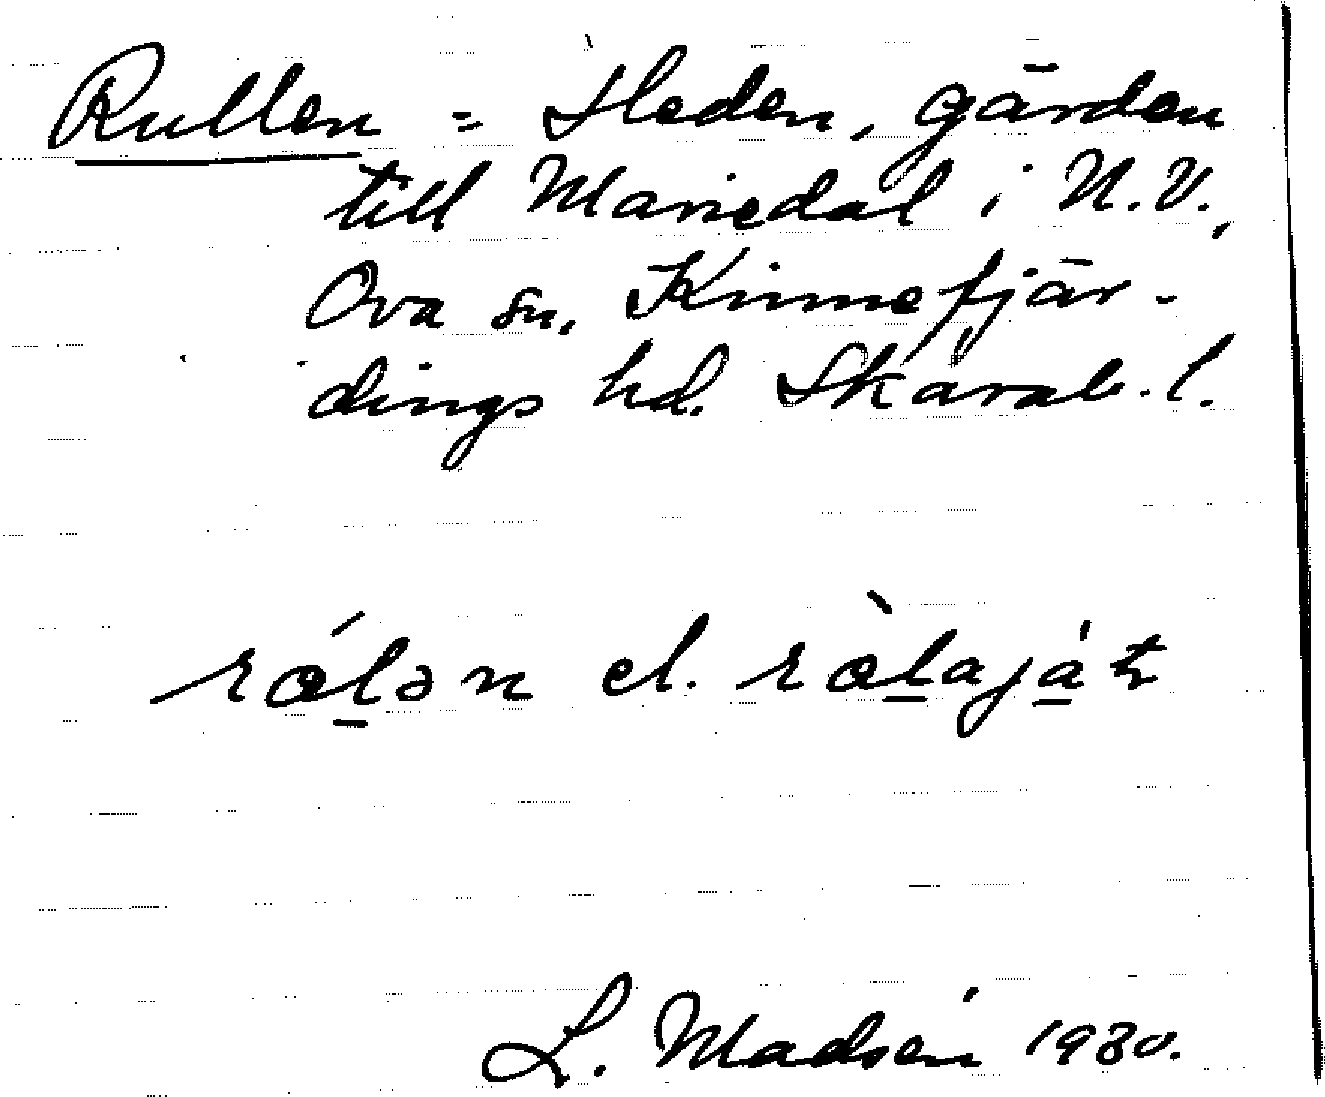 Rullen = Heden, gärden
till Mariedal i N.V.,
Ova sn, Kinnefjär-
dings hd. Skarab. l.
rólən el. ròlajȧt
L. Madsén 1930.